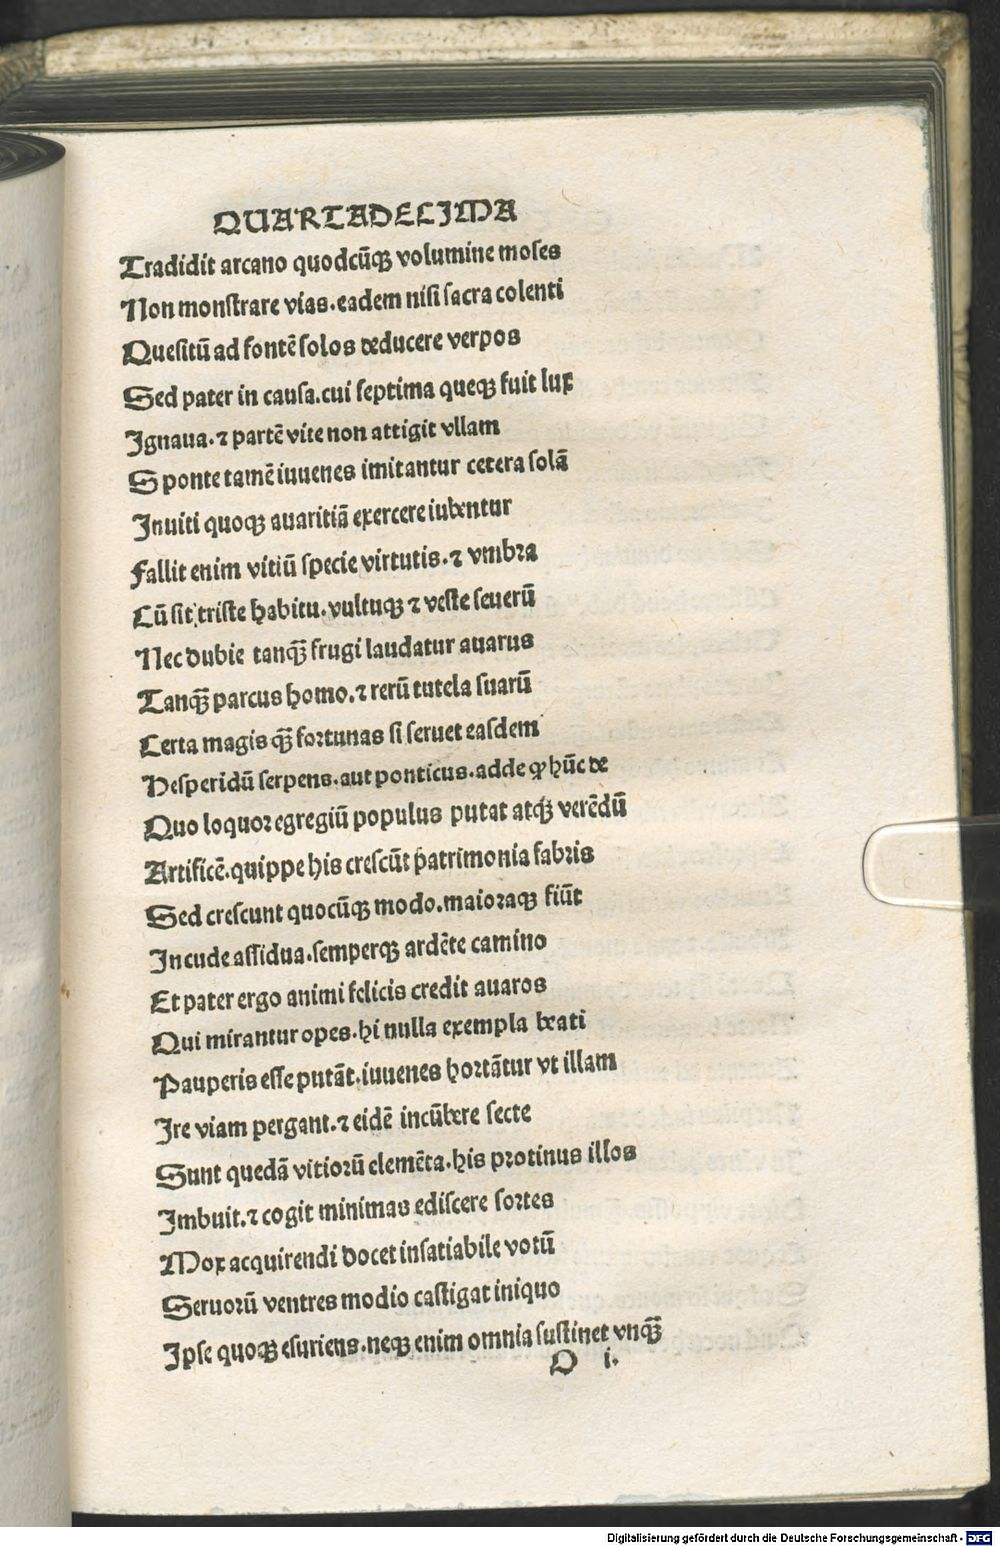 QUARTADECIMA
Tradidit arcano quodcūqꝫ volumine moses
Non monstrare vias.eadem nisi sacra colenti
Quesitū ad fontē solos deducere verpos
Sed pater in causa.cui septima queqꝫ fuit lux
Ignaua.⁊ partē vite non attigit vllam
Sponte tamē iuuenes imitantur cetera solā
Inuiti quoqꝫ auaritiā exercere iubentur
Fallit enim vitiū specie virtutis.⁊ vmbra
Cū sit triste habitu.vultuqꝫ ⁊ veste seuerū
Nec dubie tanqꝫ̄ frugi laudatur auarus
Tanqꝫ̄ parcus homo.⁊ rerū tutela suarū
Certa magis qꝫ̄ fortunas si seruet easdem
Hesperidū serpens.aut ponticus.adde ꝙ hūc de
Quo loquor egregiū populus putat atqꝫ verēdū
Artificē.quippe his crescūt patrimonia fabris
Sed crescunt quocūqꝫ modo.maioraqꝫ fiūt
Incude assidua.semperqꝫ ardēte camino
Et pater ergo animi felicis credit auaros
Qui mirantur opes.hi nulla exempla beati
Pauperis esse putāt.iuuenes hortātur vt illam
Ire viam pergant.⁊ eidē incūbere secte
Sunt quedā vitiorū elemēta.his protinus illos
Imbuit.⁊ cogit minimas ediscere sortes
Mox acquirendi docet insatiabile votū
Seruorū ventres modio castigat iniquo
Ipse quoqꝫ esuriens.neqꝫ enim omnia sustinet vnqꝫ̄
O i.
Digitalisierung gefördert durch die Deutsche Forschungsgemeinschaft - DFG